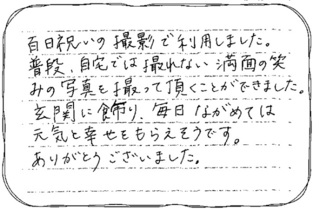 百日祝いの撮影で利用しました。
普段、自宅では撮れない満面の笑
みの写真を撮って頂くことができました。
玄関に飾り、毎日ながめては
元気と幸せをもらえそうです。
ありがとうございました。